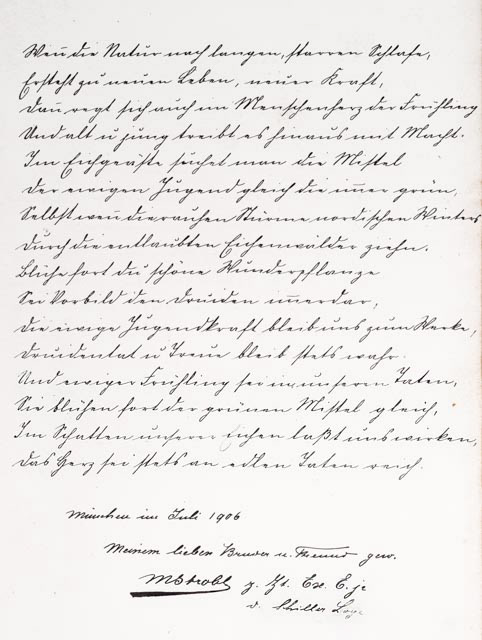 Weñ die Natur nach langen, starren Schlafe,
Ersteht zu neuen Leben, neuer Kraft,
Dañ regt sich auch im Menschenherz der Frühling
Und alt u jung treibt es hinaus mit Macht.
Im Eichgeäste suchet man die Mistel
Der ewigen Jugend gleich die im̄er grün,
Selbst weñ die rauhen Stürme nordischen Winters
Durch die entlaubten Eichenwälder ziehn.
Blühe fort du schöne Wunderpflanze
Sei Vorbild den Druiden im̄erdar,
Die ewige Jugendkraft bleib uns zum Werke,
Druidentat u Treue bleib stets wahr.
Und ewiger Frühling sei in unseren Taten,
Sie blühen fort der grünen Mistel gleich,
Im Schatten unserer Eichen laßt uns wirken,
Das Herz sei stets an edlen Taten reich.
München im Juli 1906
Meinem lieben Bruder u. Freund gew.
MStrobl z. Zt. Ex. E.
d. Schiller Loge